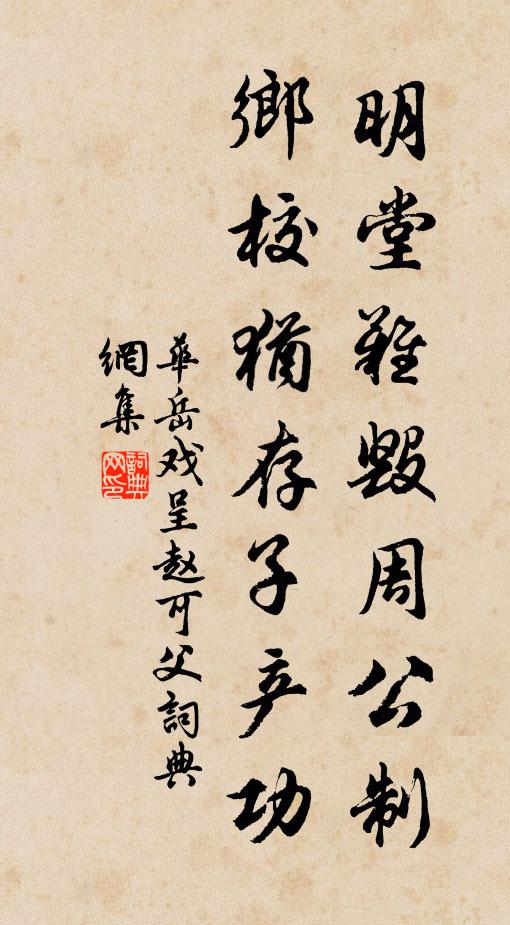 明堂難毀周公制
鄉校猶存子产功
華岳戏呈赵可父詞典
網集
詞典网印